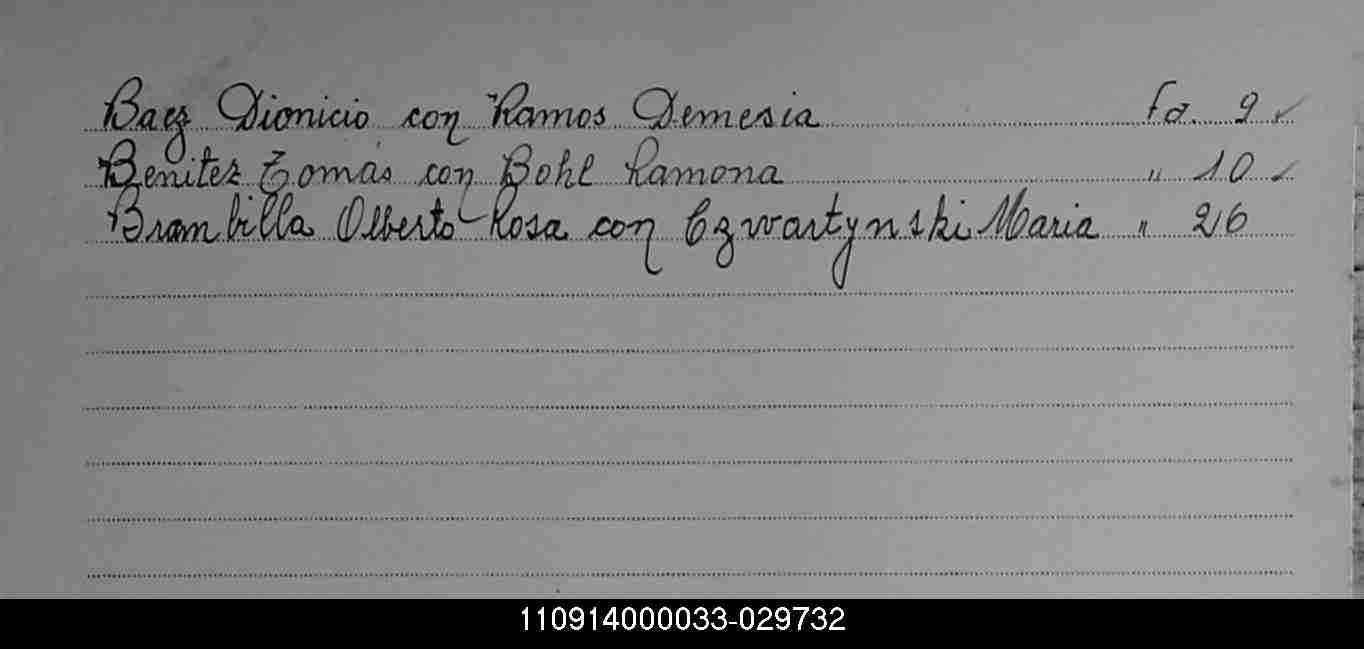 Baez Dionicio con Ramos Demesia Fo. 9 ✓
Benitez Tomás con Bohl Ramona " 10 ✓
Brambilla Alberto Rosa con Czwartynski Maria " 26
110914000033-029732